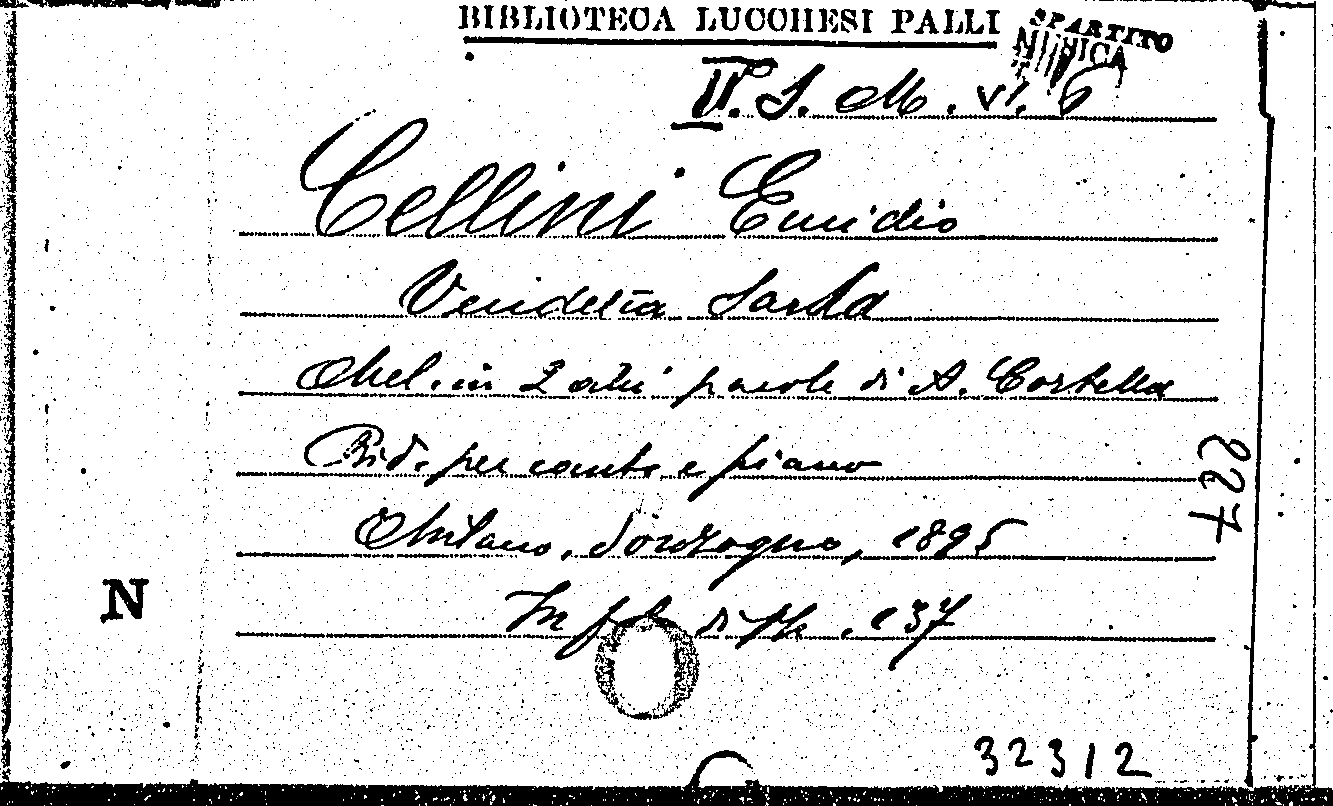 BIBLIOTECA LUCCHESI PALLI
SPARTITO
MUSICA
II. S. M. VI. 6
Cellini Emidio
Vendetta Sarda
Mel. in 2 atti parole di A. Cortella
Rid. per canto e piano
Milano, Sonzogno, 1895
In fol. di pp. 137
227
N
32312